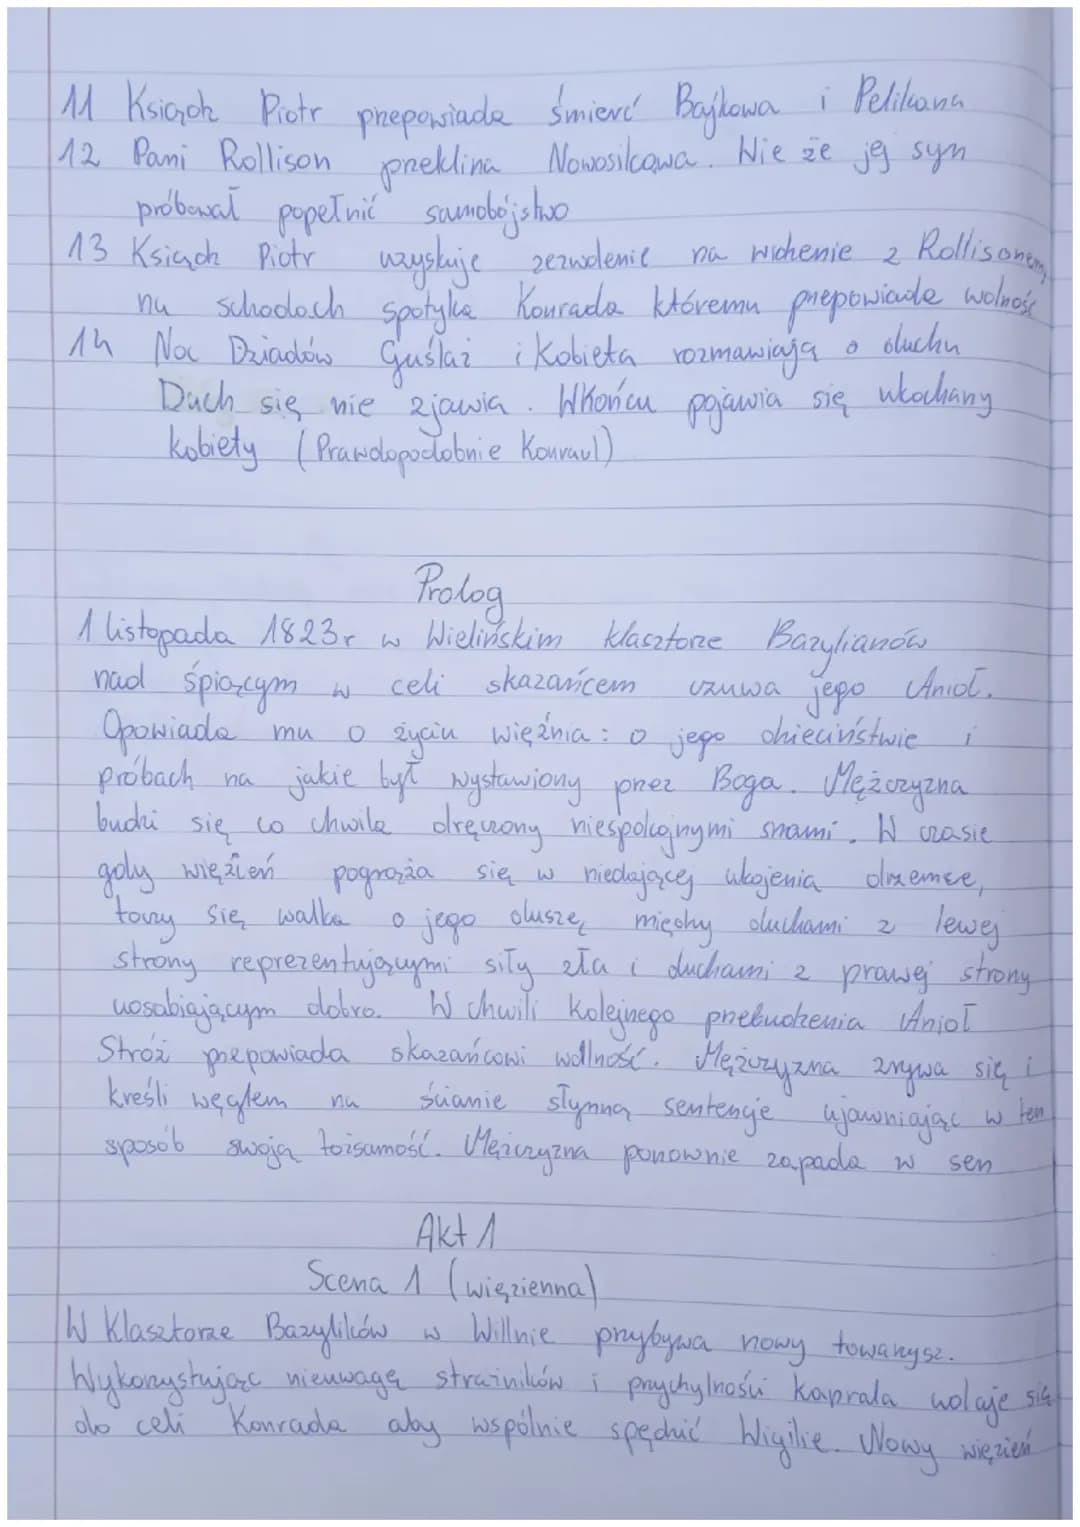 11 Ksiądz Piotr przepowiada śmierć Bajkowa i Pelikana
12 Pani Rollison przeklina Nowosilcowa. Wie że jej syn
próbował popełnić samobójstwo
13 Ksiądz Piotr uzyskuje zezwolenie na widzenie z Rollisonem,
na schodach spotyka Konrada któremu przepowiada wolność
14 Noc Dziadów Guślarz i Kobieta rozmawiają o duchu
Duch się nie zjawia. WKońcu pojawia się ukochany
kobiety (Prawdopodobnie Konrad)
Prolog
1 listopada 1823r w Wielińskim klasztorze Bazylianów
nad śpiącym w celi skazańcem czuwa jego Anioł.
Opowiada mu o życiu więźnia: o jego dzieciństwie i
próbach na jakie był wystawiony przez Boga. Mężczyzna
budzi się co chwila dręczony niespokojnymi snami. W czasie
gdy więzień pogrąża się w niedającej ukojenia drzemce,
toczy się walka o jego duszę między duchami z lewej
strony reprezentującymi siły zła i duchami z prawej strony
uosabiającym dobro. W chwili kolejnego przebudzenia Anioł
Stróż przepowiada skazańcowi wolność. Mężczyzna zrywa się i
kreśli węglem na ścianie słynną sentencje ujawniając w ten
sposób swoją tożsamość. Mężczyzna ponownie zapada w sen
Akt 1
Scena 1 (więzienna)
W Klasztorze Bazylików w Willnie przybywa nowy towarzysz.
Wykorzystując nieuwagę strażników i przychylności kaprala udaje się
do celi Konrada aby wspólnie spędzić Wigilie. Nowy więzień